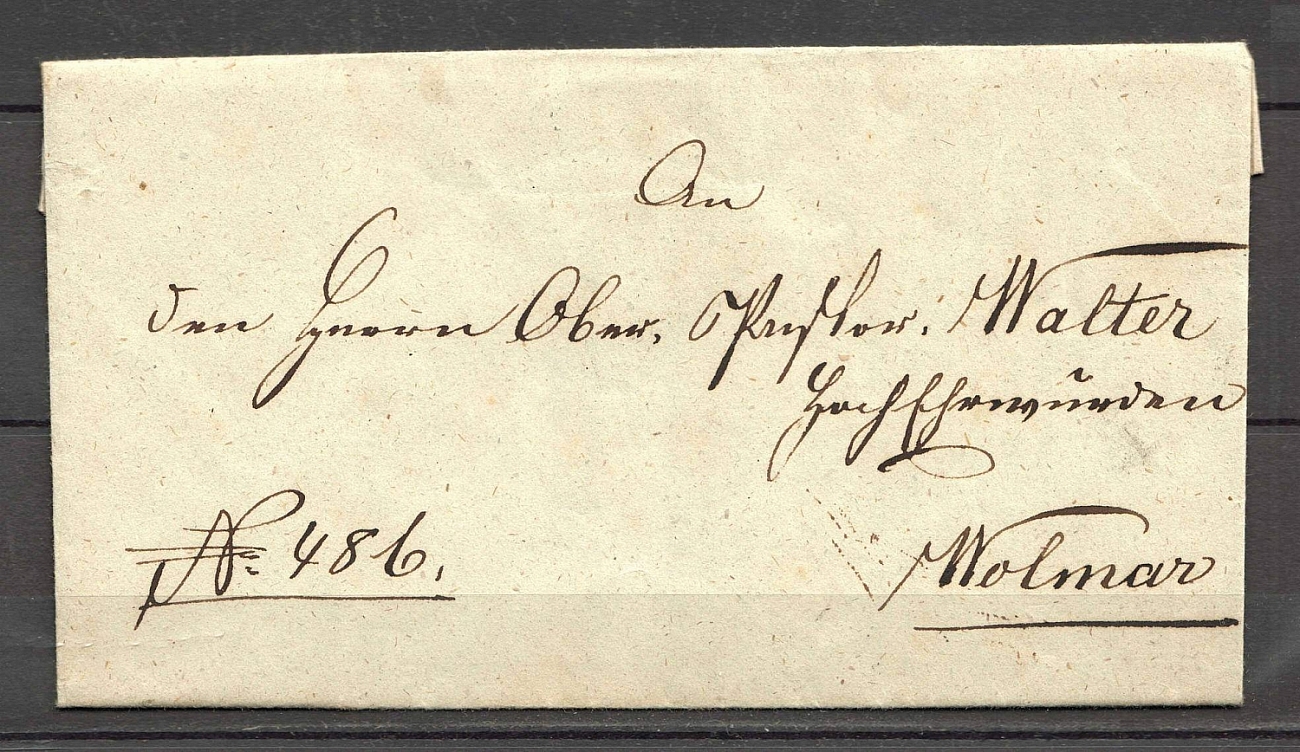 An
den Herrn Ober-Pastor Walter
HochEhrwürden
Wolmar
No. 486.